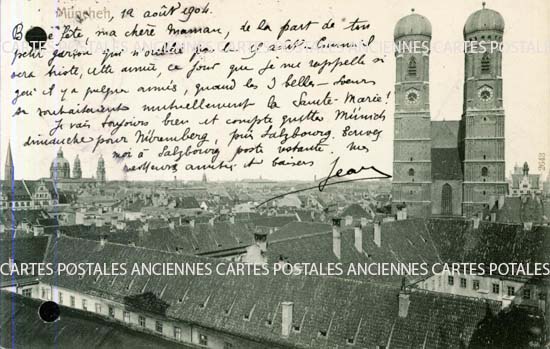 München, 12 août 1904.
Bonne Fête, ma chère Maman, de la part de ton
petit garçon qui n'oublie pas le 15 août. Cumul
sera triste, cette année, ce jour que je me rappelle si
gai il y a quelques années, quand les 3 belles-sœurs
se souhaitaient mutuellement la Sainte-Marie!
Je vais toujours bien et compte quitter Münich
dimanche pour Nüremberg, puis Salzbourg. Envoyez
moi à Salzbourg poste restante. Mes
meilleures amitiés et baisers Jean
CARTES POSTALES ANCIENNES CARTES POSTALES ANCIENNES CARTES POSTALES ANCIENNES CARTES POSTALES
2643